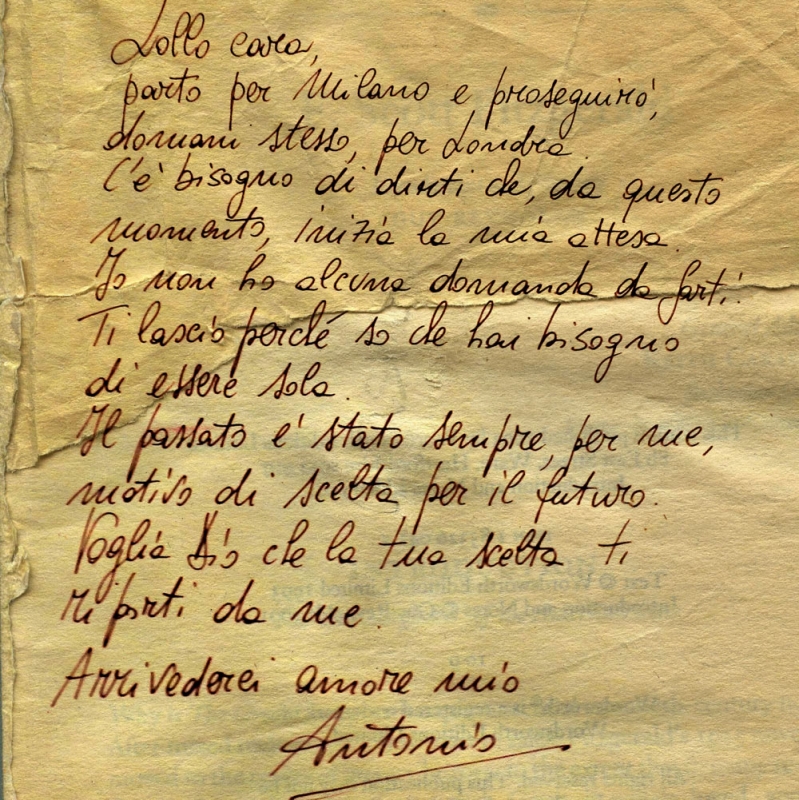 Lollo cara,
parto per Milano e proseguirò,
domani stesso, per Londra.
C'è bisogno di dirti che, da questo
momento, inizia la mia attesa.
Io non ho alcuna domanda da farti.
Ti lascio perché so che hai bisogno
di essere sola.
Il passato e' stato sempre, per me,
motivo di scelta per il futuro.
Voglia Dio che la tua scelta ti
riporti da me.
Arrivederci amore mio
Antonio